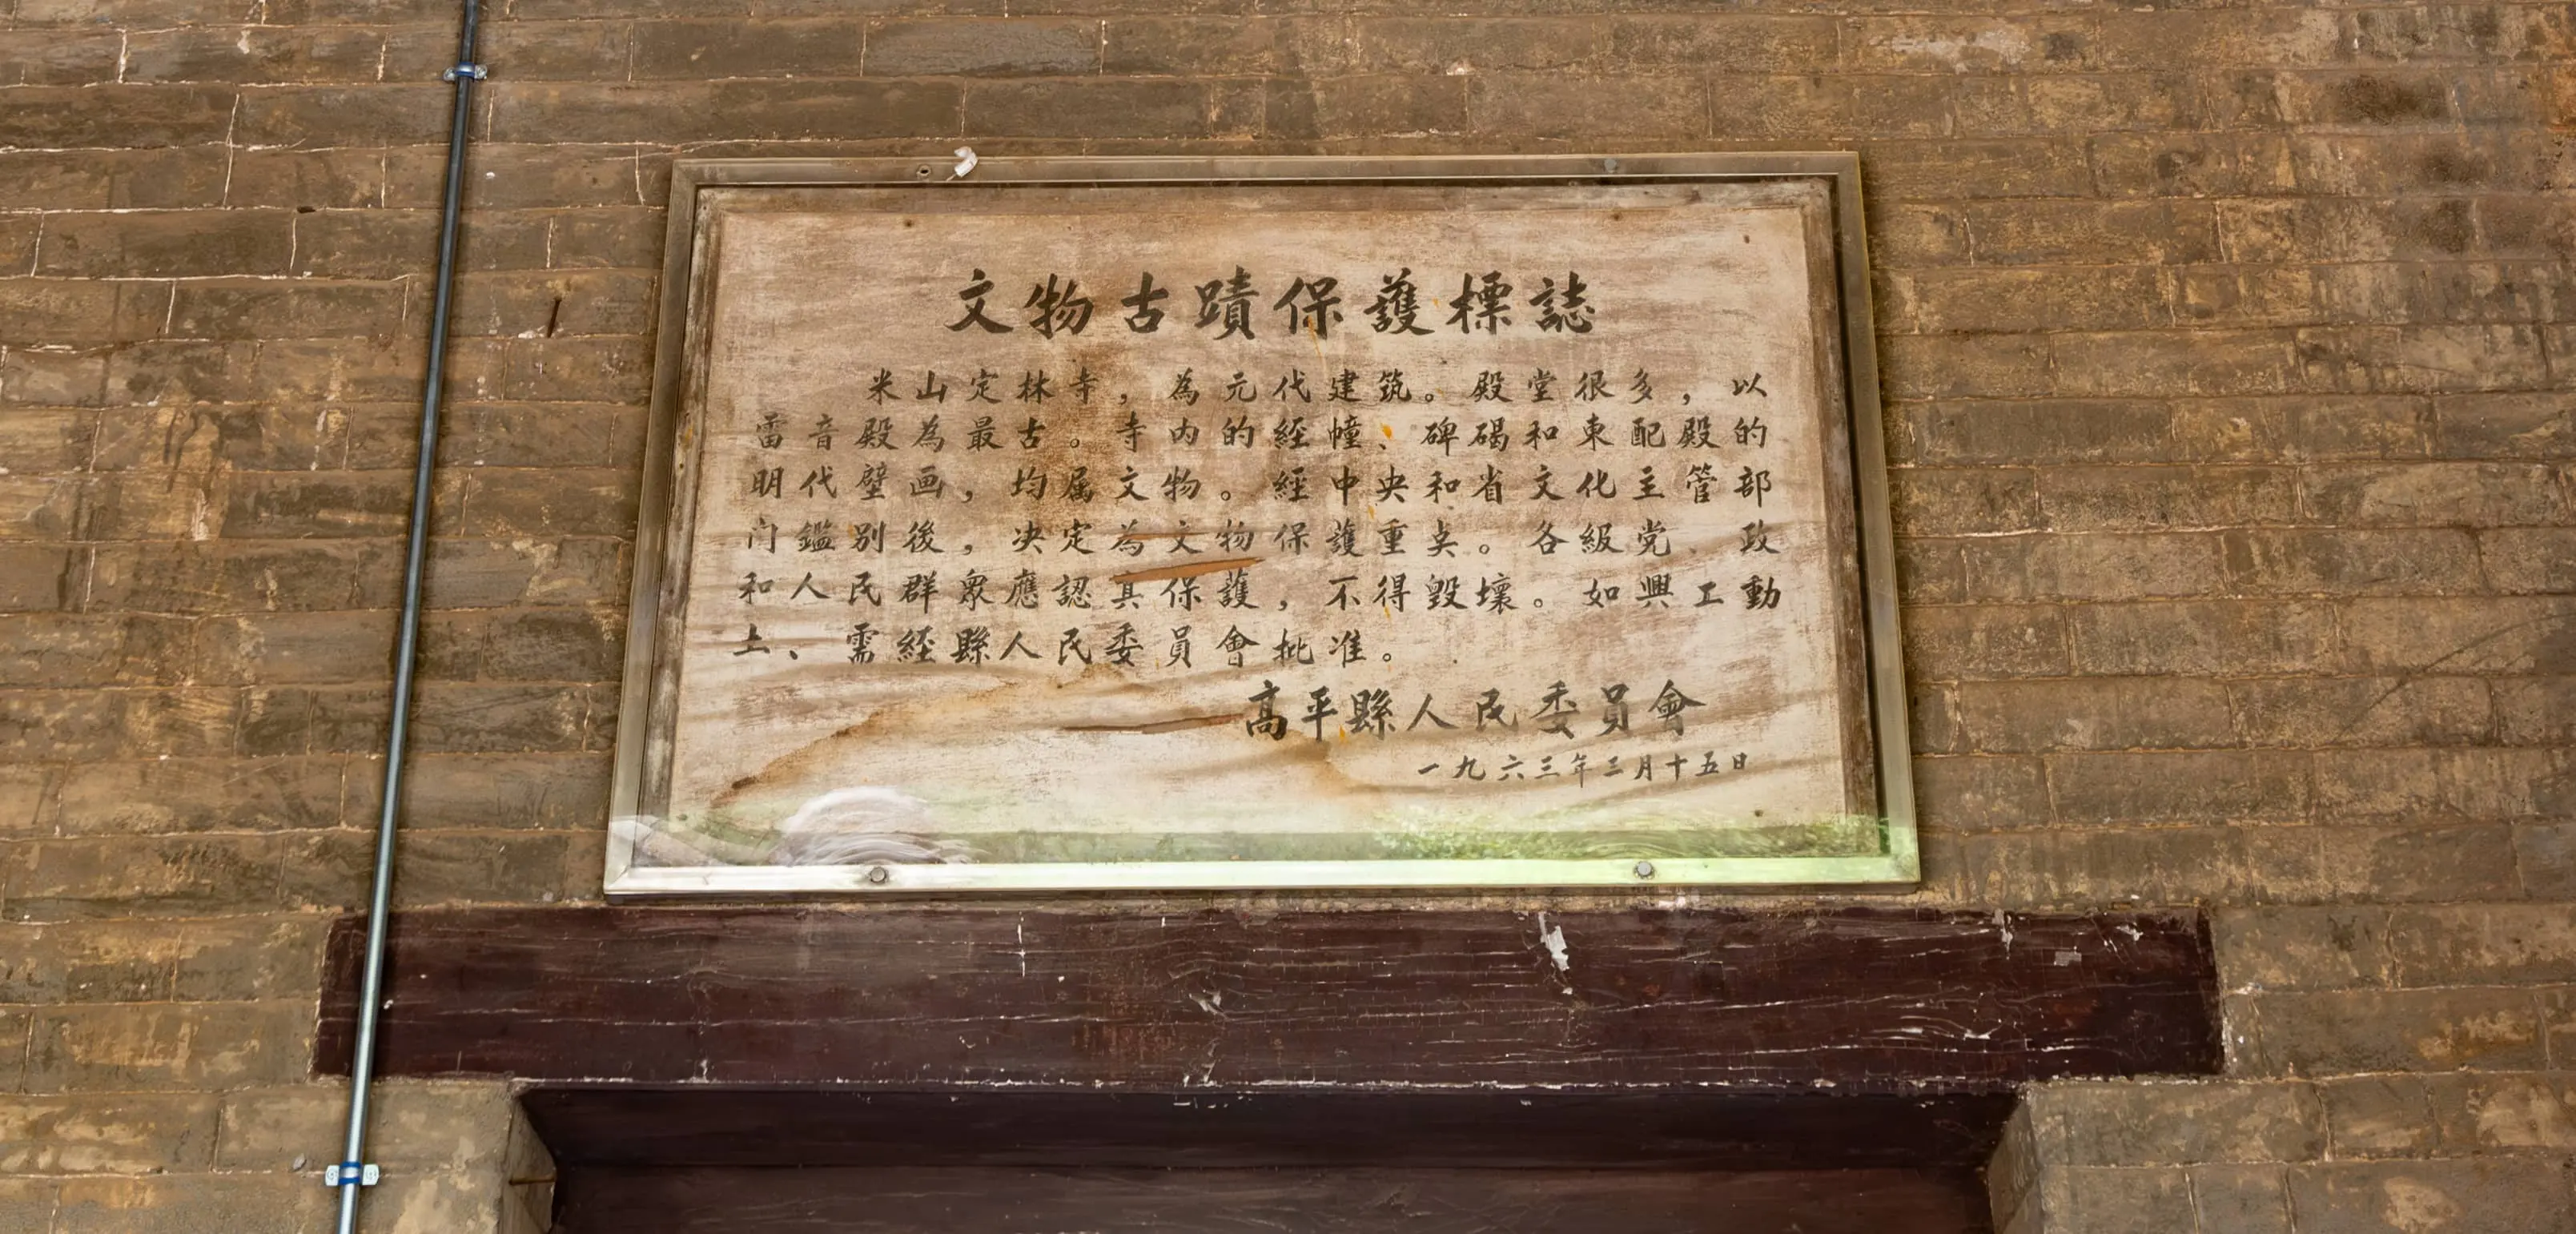 文物古蹟保護標誌
米山定林寺，為元代建筑。殿堂很多，以
雷音殿為最古。寺内的經幢、碑碣和東配殿的
明代壁画，均属文物。經中央和省文化主管部
门鑑别後，决定為文物保護重奌。各級党、政
和人民群衆應認真保護，不得毀壞。如興工動
土、需經縣人民委員會批准。
高平縣人民委員會
一九六三年三月十五日